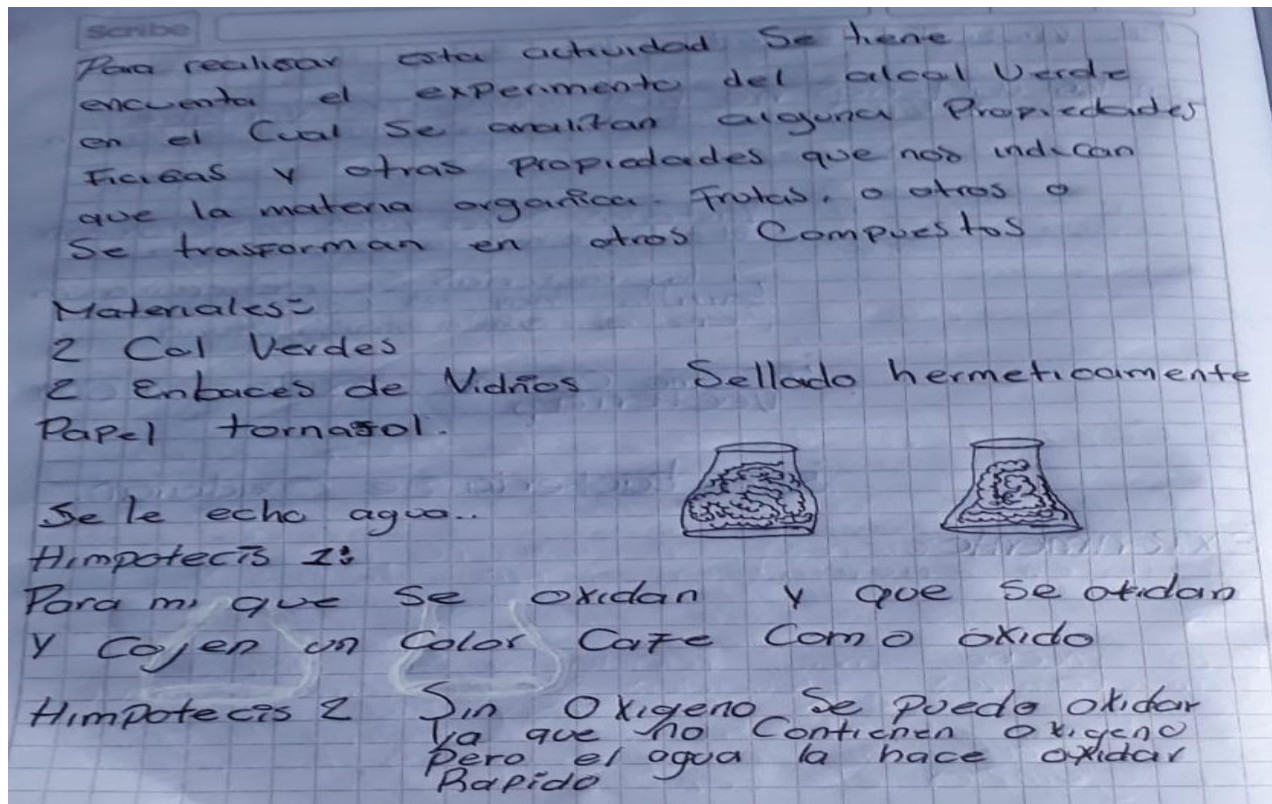 Scribe
Para realisar esta actividad Se tiene
encuenta el experimento del alcal Verde
en el Cual Se analitan alguna Propiedades
Ficicas y otras propiedades que nos indican
que la materia organica. Frutas. o otros o
Se trasforman en otros Compuestos
Materiales:
2 Col Verdes
2 Enbaces de Vidrios Sellado hermeticamente
Papel tornasol.
Se le echo agua..
Himpotecis 1:
Para mi que se oxidan y que se oxidan
y Cojen un Color Cafe Como oxido
Himpotecis 2 Sin Oxigeno Se puede oxidar
ya que no Contienen oxigeno
pero el agua la hace oxidar
Rapido